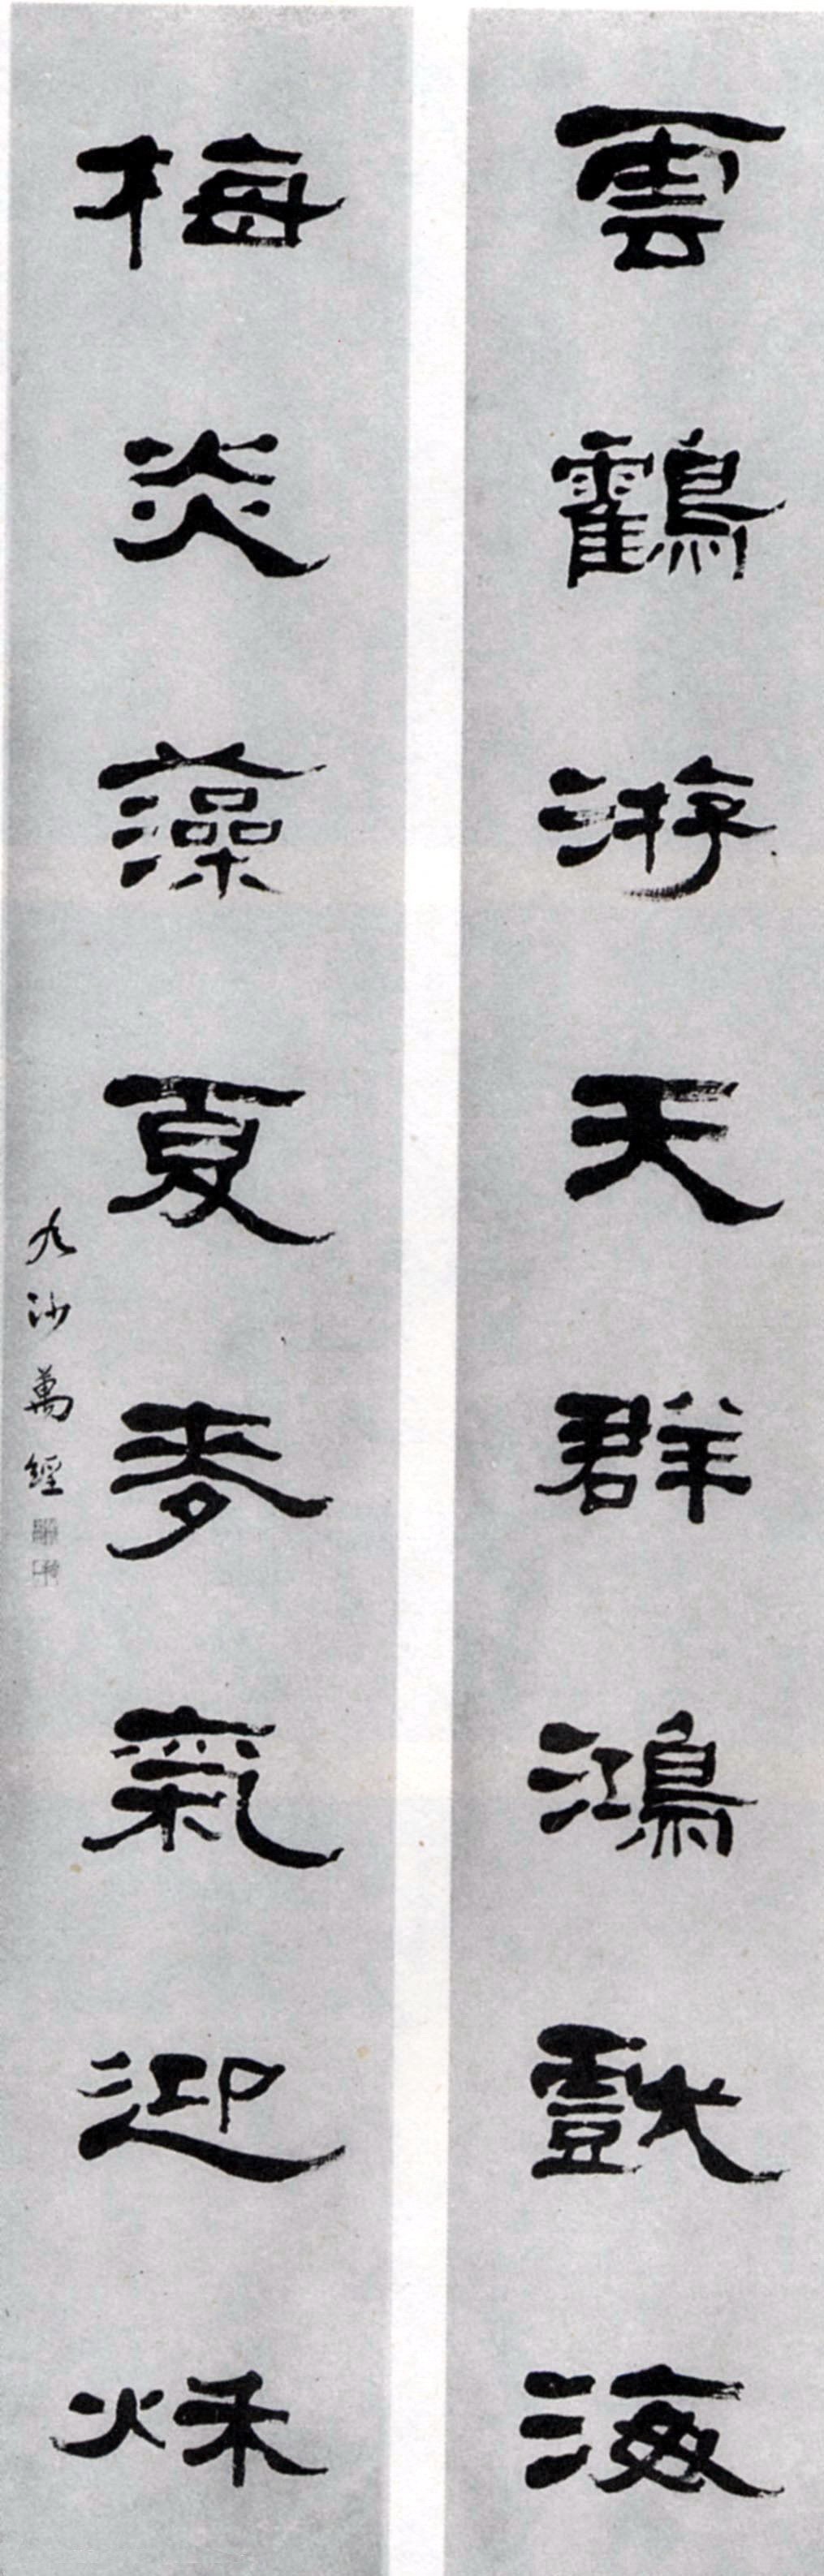 雲鶴游天群鴻戲海
梅炎藻夏麥氣迎秌
九沙萬經